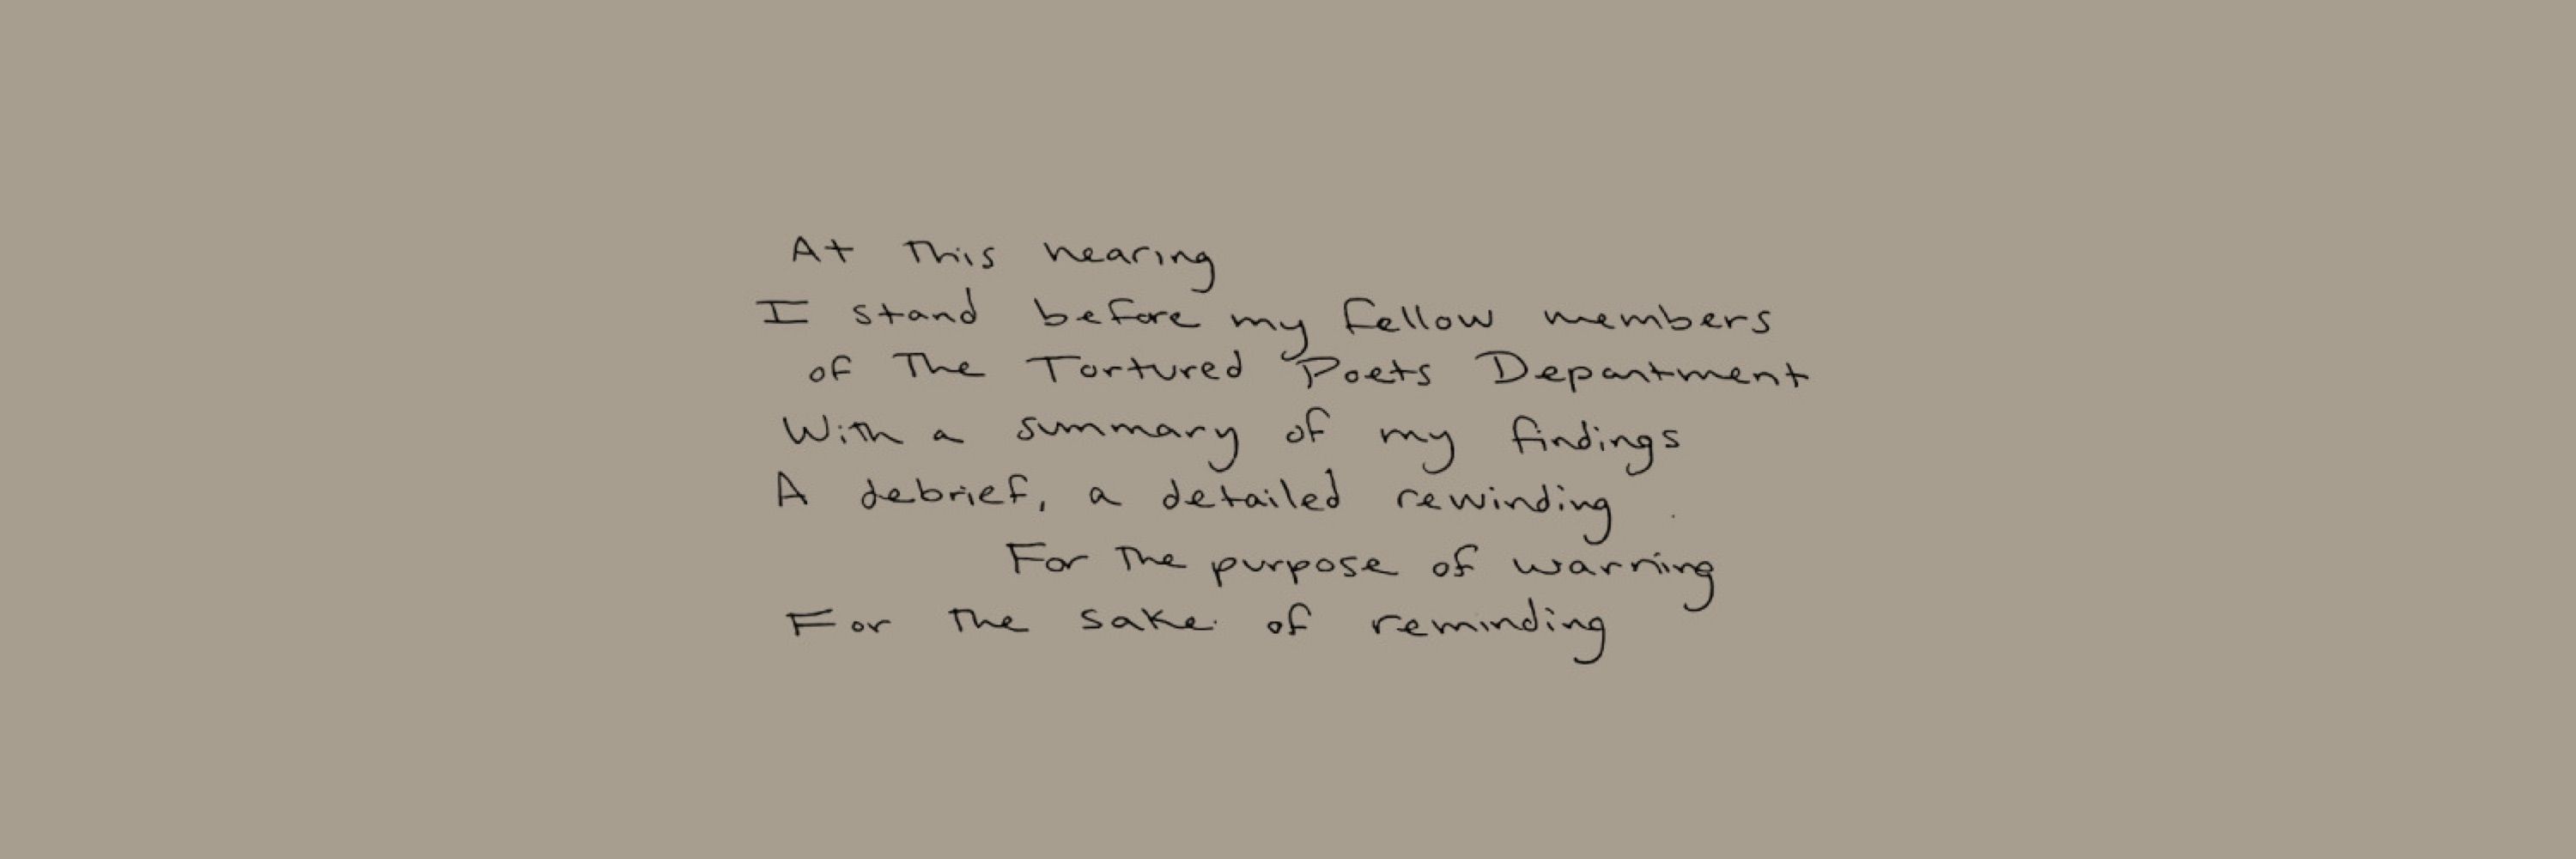 At this hearing
I stand before my fellow members
of The Tortured Poets Department
With a summary of my findings
A debrief, a detailed rewinding
For the purpose of warning
For the sake of reminding